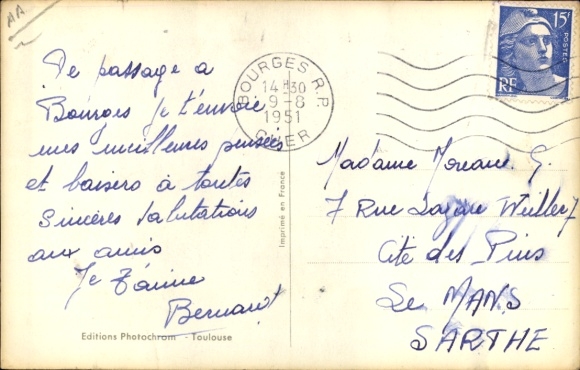 AA
De passage à
Bourges je t'envoie
mes meilleures pensées
et baisers à toutes
Sincères salutations
aux amis
Je t'aime
Bernard
Editions Photochrom - Toulouse
Imprimé en France
BOURGES R.P.
14H30
9-8
1951
CHER
15F
POSTES
RF
Madame Moreau G.
7 Rue Lazare Weiller 7
Cité des Pins
Le MANS
SARTHE